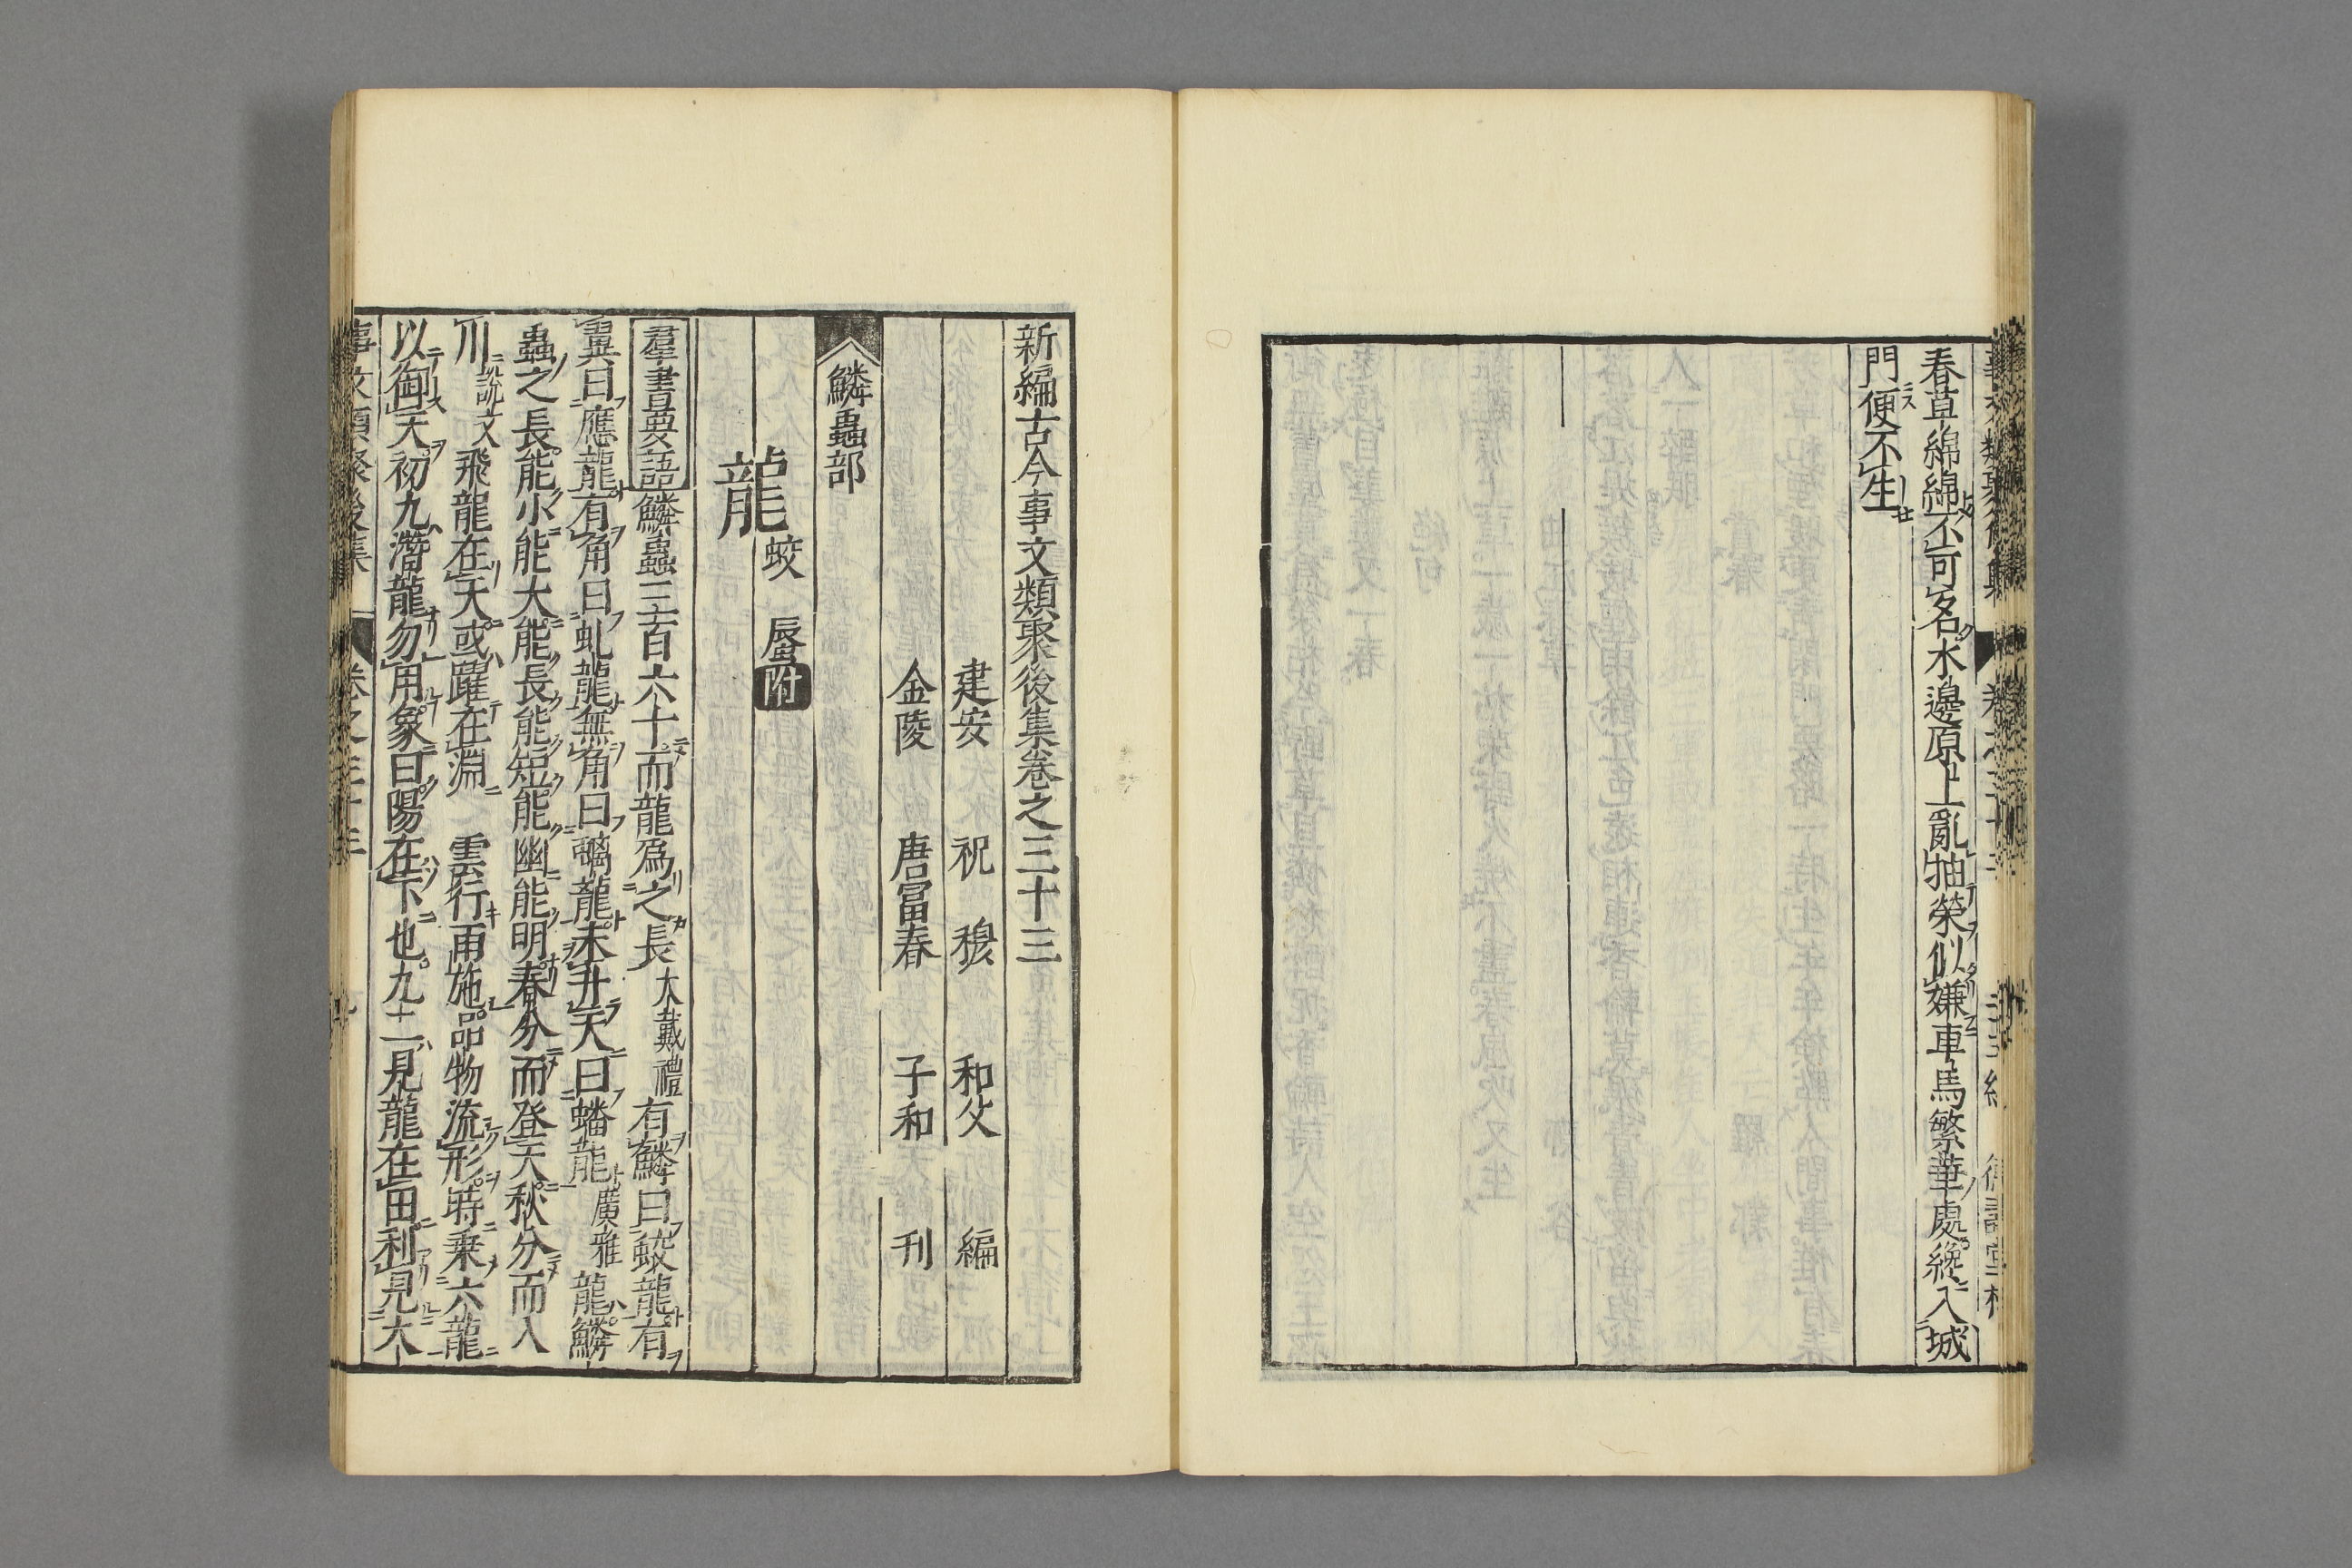 春草綿綿不可名水邊原上亂抽榮似嫌車馬繁華處纔入城
門便不生
新編古今事文類聚後集卷之三十三
建安 祝 穆 和父 編
金陵 唐富春 子和 刊
鱗蟲部
龍 蛟 蜃附
羣書要語 鱗蟲三百六十而龍爲之長 大戴禮 有鱗曰蛟龍有
翼曰應龍有角曰虬龍無角曰螭龍未升天曰蟠龍 廣雅 龍鱗
蟲之長能小能大能長能短能幽能明春分而登天秋分而入
川 說文 飛龍在天或躍在淵 雲行雨施品物流形時乗六龍
以御天初九潛龍勿用象曰陽在下也九二見龍在田利見大
事文類聚後集 卷之三十三